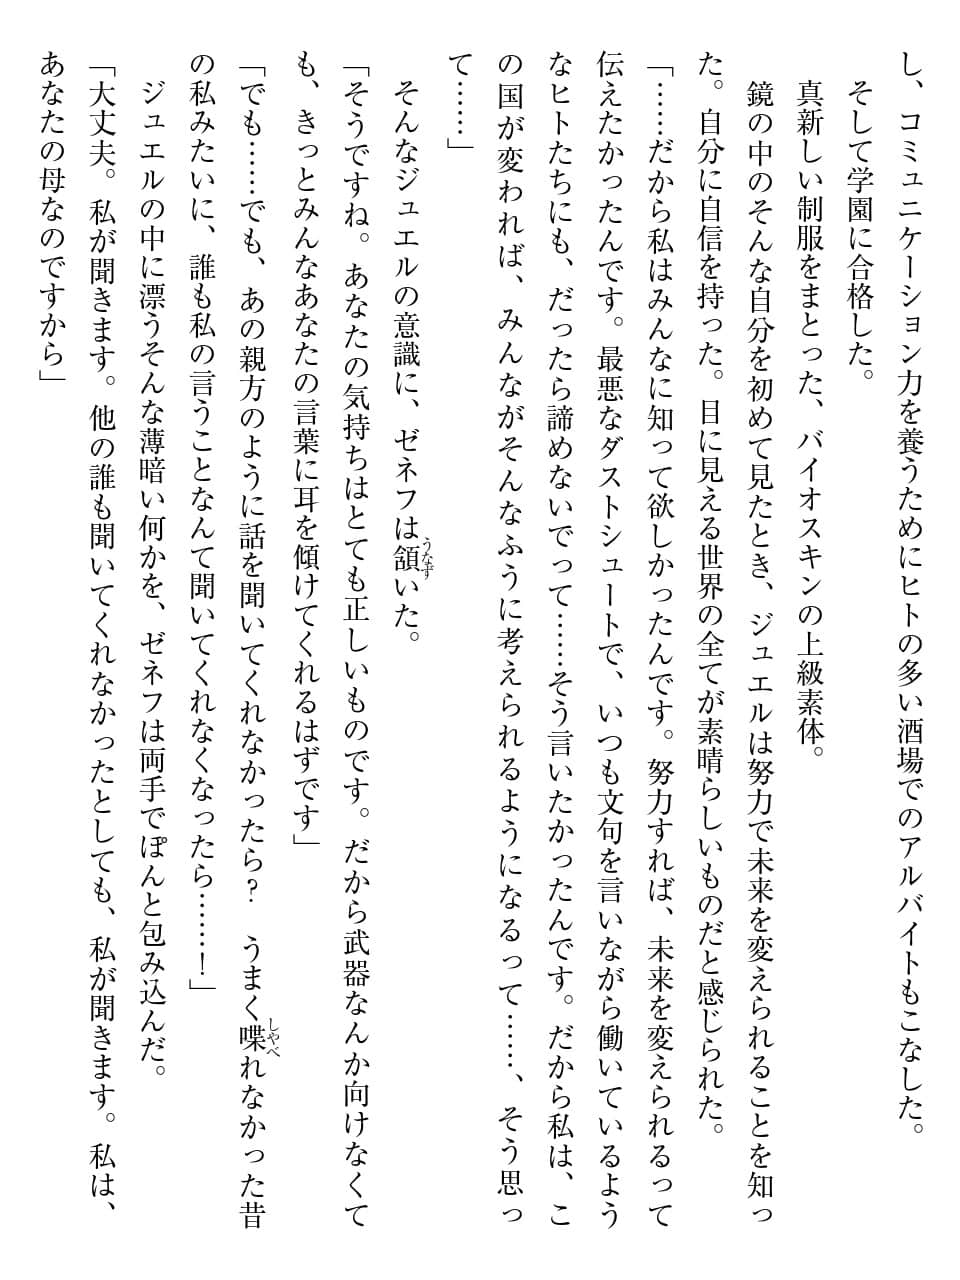 し、コミュニケーション力を養うためにヒトの多い酒場でのアルバイトもこなした。
　そして学園に合格した。
　真新しい制服をまとった、バイオスキンの上級素体。
　鏡の中のそんな自分を初めて見たとき、ジュエルは努力で未来を変えられることを知っ
た。自分に自信を持った。目に見える世界の全てが素晴らしいものだと感じられた。
「……だから私はみんなに知って欲しかったんです。努力すれば、未来を変えられるって
伝えたかったんです。最悪なダストシュートで、いつも文句を言いながら働いているよう
なヒトたちにも、だったら諦めないでって……そう言いたかったんです。だから私は、こ
の国が変われば、みんながそんなふうに考えられるようになるって……、そう思っ
て……」
　そんなジュエルの意識に、ゼネフは頷うなずいた。
「そうですね。あなたの気持ちはとても正しいものです。だから武器なんか向けなくて
も、きっとみんなあなたの言葉に耳を傾けてくれるはずです」
「でも……でも、あの親方のように話を聞いてくれなかったら？　うまく喋しゃべれなかった昔
の私みたいに、誰も私の言うことなんて聞いてくれなくなったら……！」
　ジュエルの中に漂うそんな薄暗い何かを、ゼネフは両手でぽんと包み込んだ。
「大丈夫。私が聞きます。他の誰も聞いてくれなかったとしても、私が聞きます。私は、
あなたの母なのですから」